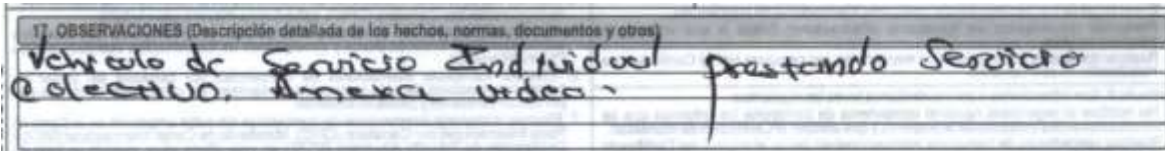 17. OBSERVACIONES (Descripción detallada de los hechos, normas, documentos y otros)
Vehiculo de Servicio Individual prestando Servicio
Colectivo. Anexa video.